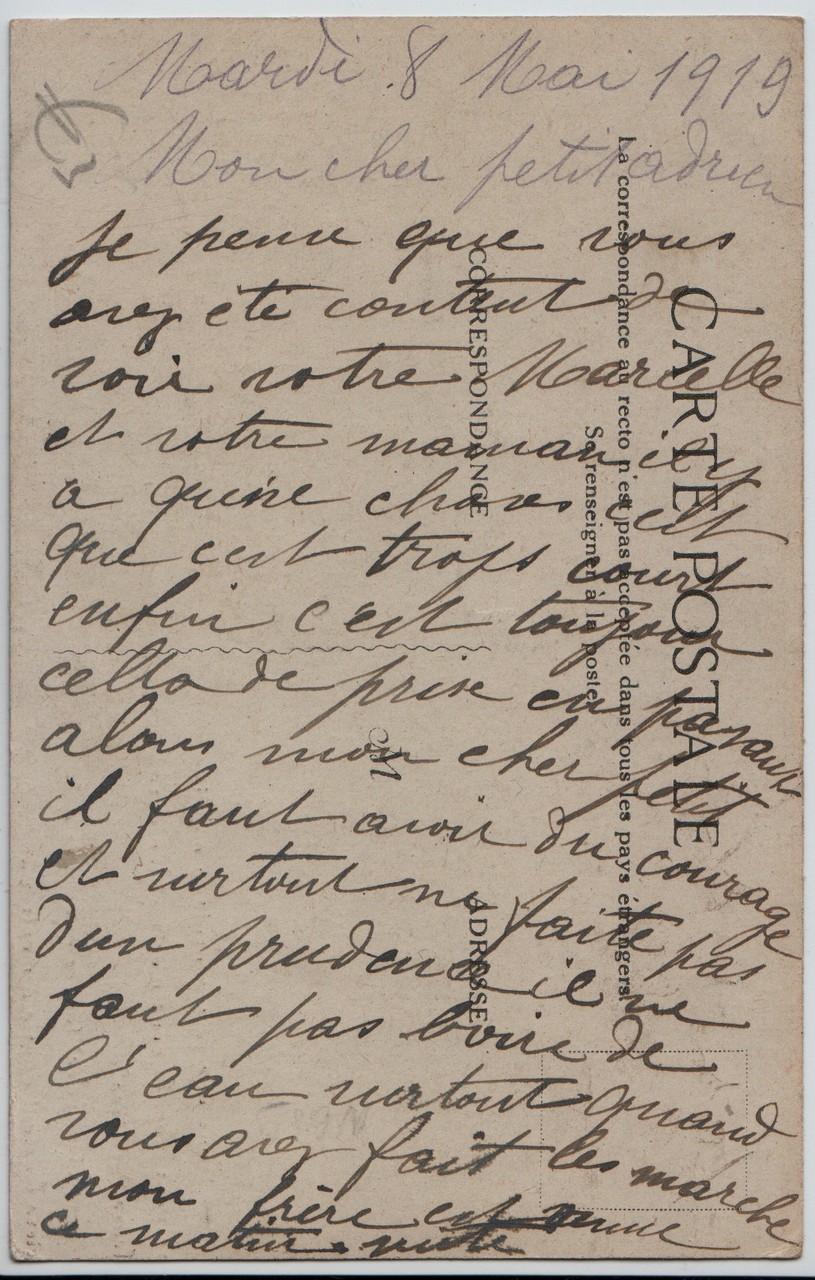 Mardi 8 Mai 1919
Mon cher petit adrien
Je pense que vous
avez été contant de
voir votre Marcelle
et votre maman il y
a qu'une choses celt
que cest trops court
enfin c'est toujour
cella de prise en pasant
alons mon cher petit
il faut avoir du courage
et surtout ne faite pas
d'un prudence il ne
faut pas boire de
l'eau surtout quand
vous avez fait les marche
mon frère est venue
ce matin
CARTE POSTALE
La correspondance au recto n'est pas acceptée dans tous les pays étrangers
Se renseigner à la poste
CORRESPONDANCE
ADRESSE